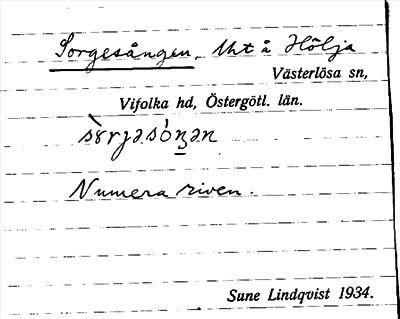 Sorgesången, Uht å Hölja
Västerlösa sn,
Vifolka hd, Östergötl. län.
Numera riven.
Sune Lindqvist 1934.